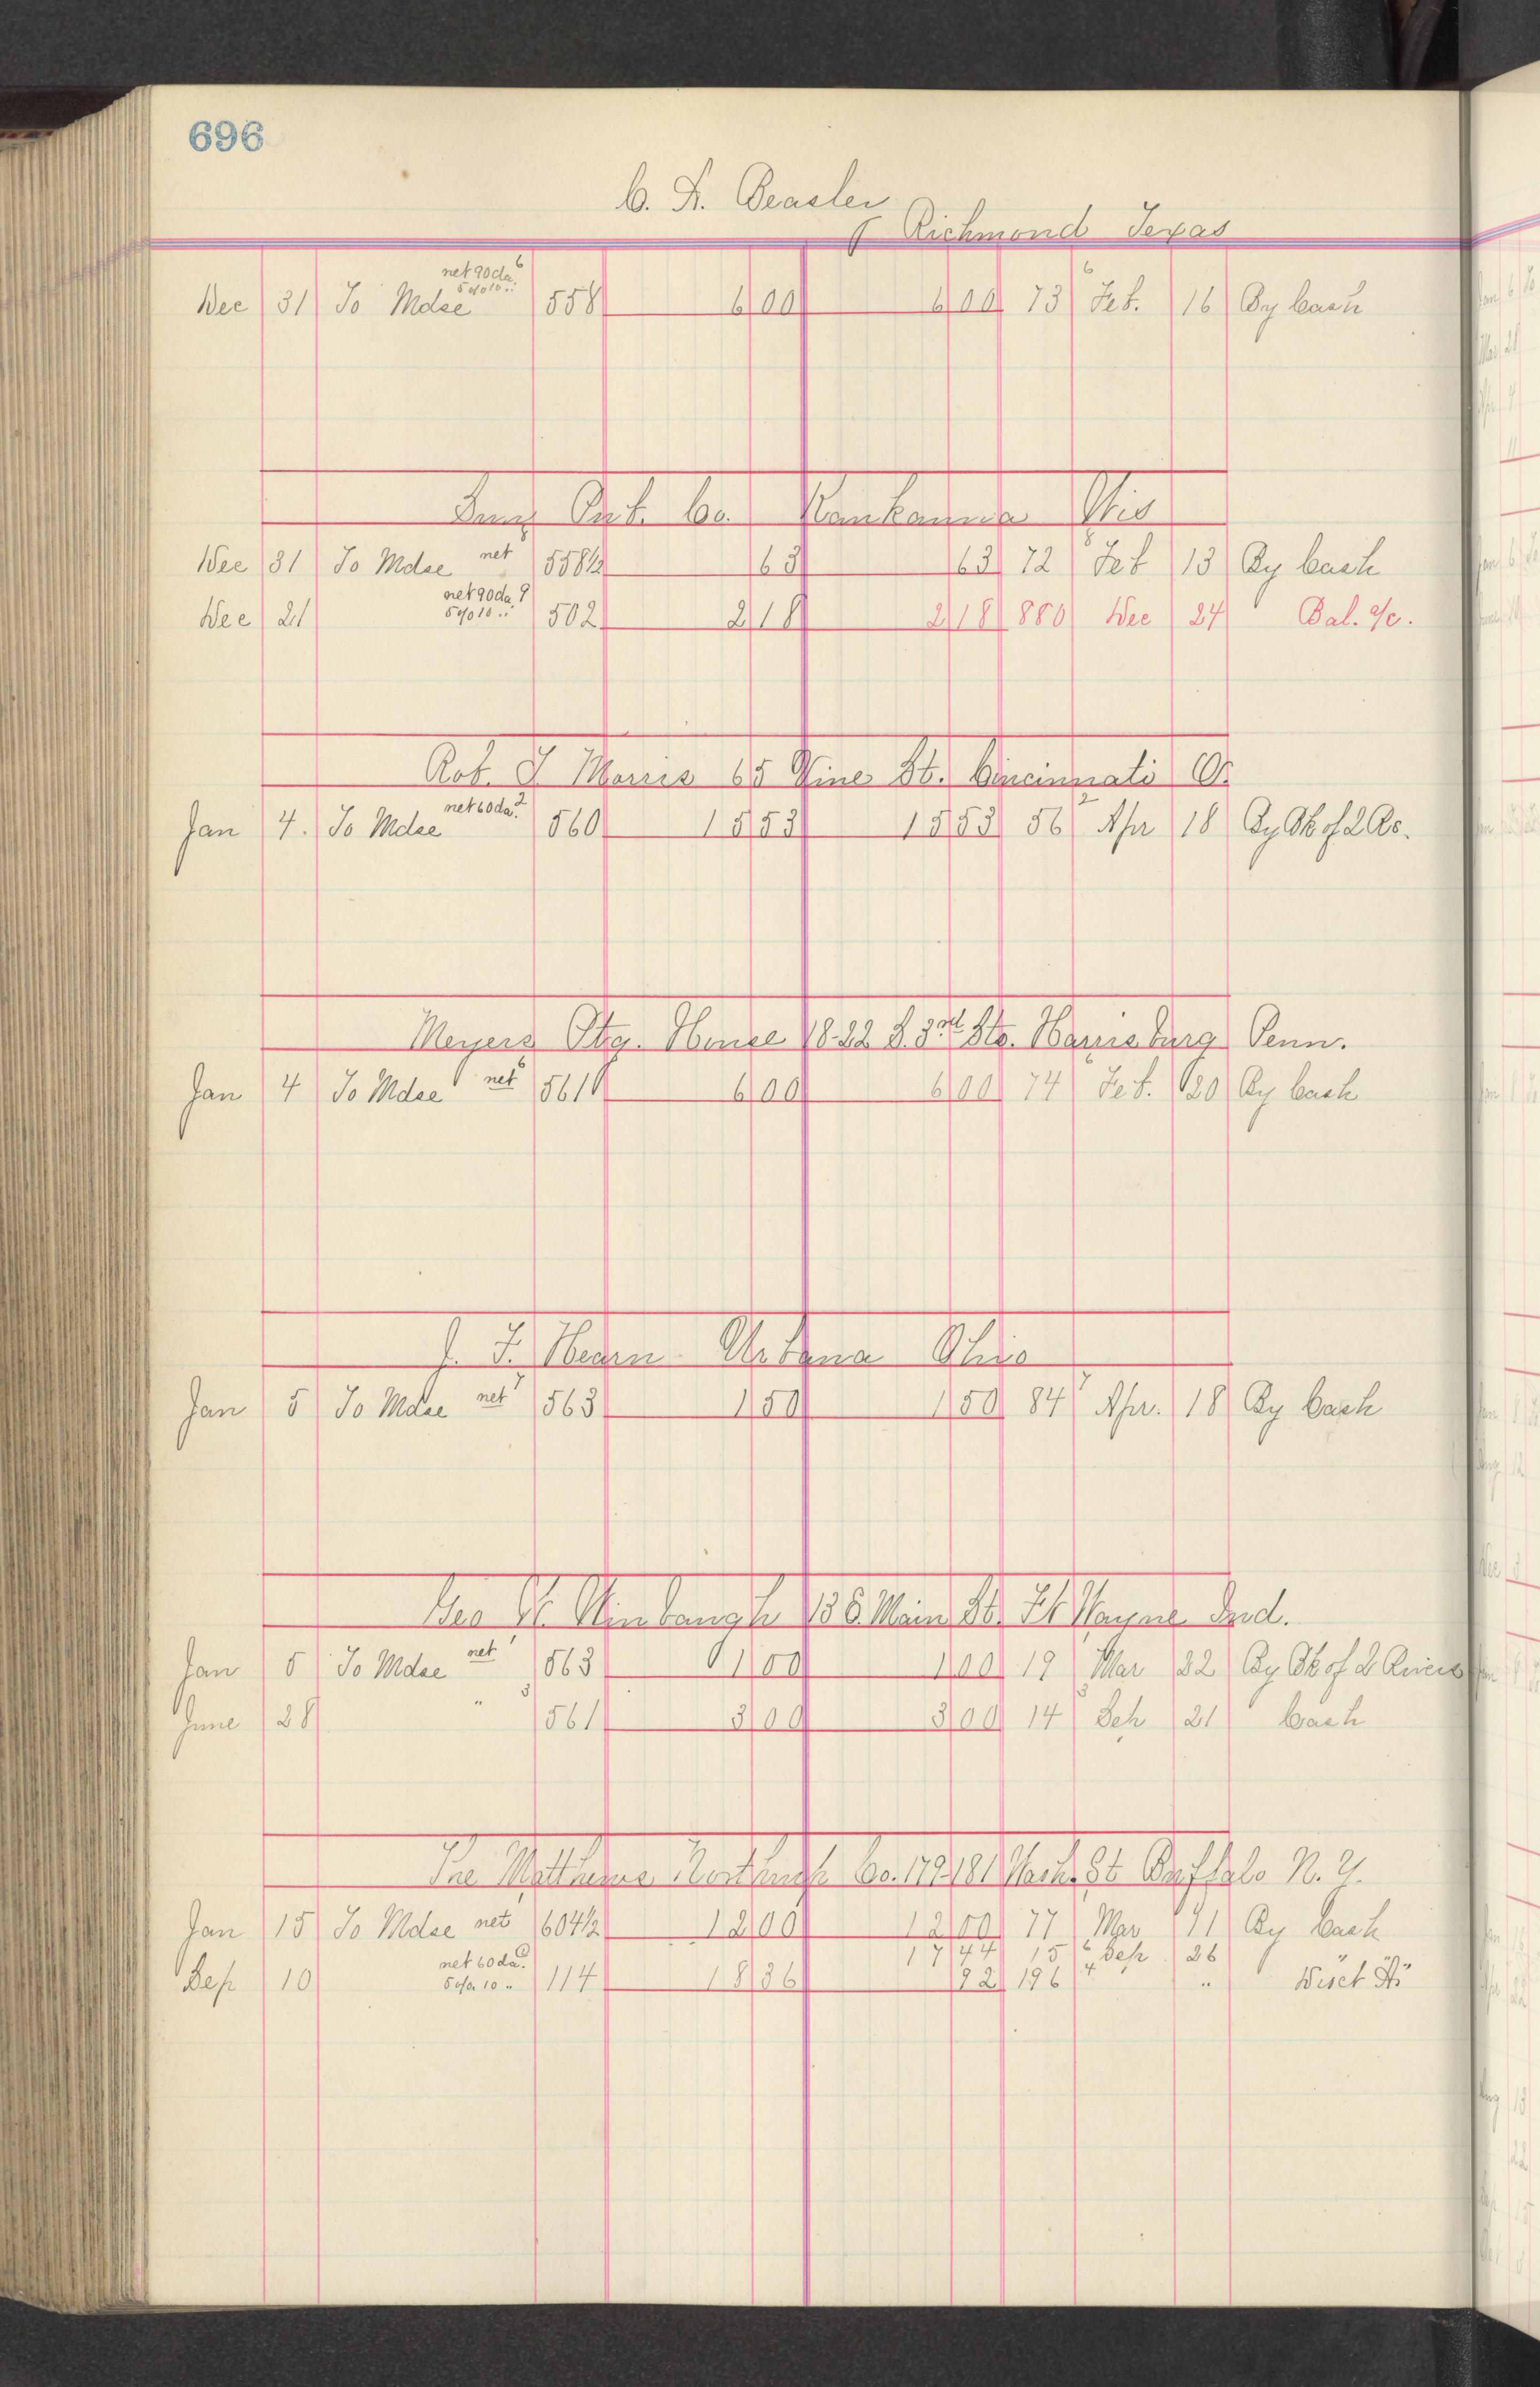 696
C. A. Beasley
Richmond Texas
Dec 31 To Mdse net 90 da. 6 5% 10 .. 558 6 00 6 00 73 6 Feb. 16 By Cash
Pub. Co. Kaukauna Wis
Dec 31 To Mdse net 8 558½ 63 63 72 8 Feb 13 By Cash
Dec 21 net 90 da 9 5% 10 .. 502 2 18 2 18 880 Dec 24 Bal. a/c.
Rob. T Morris 65 Vine St. Cincinnati O.
Jan 4. To Mdse net 60 da. 2 560 15 53 15 53 56 2 Apr 18 By Bk of 2 Rs.
Meyers Ptg. House 18-22 S. 3rd Sts. Harrisburg Penn.
Jan 4 To Mdse net 6 561 6 00 6 00 74 Feb. 20 By Cash
J. F. Hearn Urbana Ohio
Jan 5 To Mdse net 7 563 1 50 1 50 84 7 Apr. 18 By Cash
Geo W. Winbaugh 13 E. Main St. Ft Wayne Ind.
Jan 5 To Mdse net 1 563 1 00 1 00 19 Mar 22 By Bk of 2 Rivers
June 28 " 3 561 3 00 3 00 14 3 Sep 21 Cash
The Matthews Northrup Co. 179-181 Wash. St Buffalo N. Y.
Jan 15 To Mdse net 604½ 12 00 12 00 77 Mar 11 By Cash
17 44 15 6 Sep 26
Sep 10 net 60 da. 5% 10 .. 114 18 36 92 196 4 " Disct